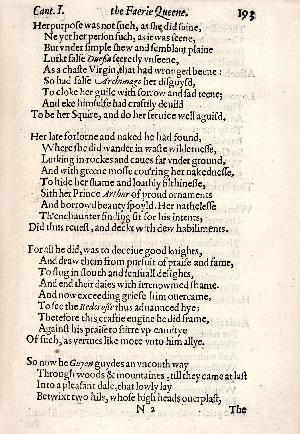 Cant. I. the Faerie Queene. 193
Her purpose was not such, as she did faine,
Ne yet her person such, as it was seene,
But vnder simple shew and semblant plaine
Lurkt false Duessa secretly vnseene,
As a chaste Virgin, that had wronged beene:
So had false Archimago her disguysd,
To cloke her guile with sorrow and sad teene;
And eke himselfe had craftily deuisd
To be her Squire, and do her seruice well aguisd.
Her late forlorne and naked he had found,
Where she did wander in waste wildernesse,
Lurking in rockes and caues far vnder ground,
And with greene mosse cou'ring her nakednesse,
To hide her shame and loathly filthinesse,
Sith her Prince Arthur of proud ornaments
And borrowd beauty spoyld. Her nathelesse
Th'enchaunter finding fit for his intents,
Did thus reuest, and deckt with dew habiliments.
For all he did, was to deceiue good knights,
And draw them from pursuit of praise and fame,
To slug in slouth and sensuall delights,
And end their daies with irrenowmed shame.
And now exceeding griefe him ouercame,
To see the Redcrosse thus aduaunced hye;
Therefore this craftie engine he did frame,
Against his praise to stirre vp enmitye
Of such, as vertues like mote vnto him allye.
So now he Guyon guydes an vncouth way
Through woods & mountaines, till they came at last
Into a pleasant dale, that lowly lay
Betwixt two hils, whose high heads ouerplast,
N 2 The